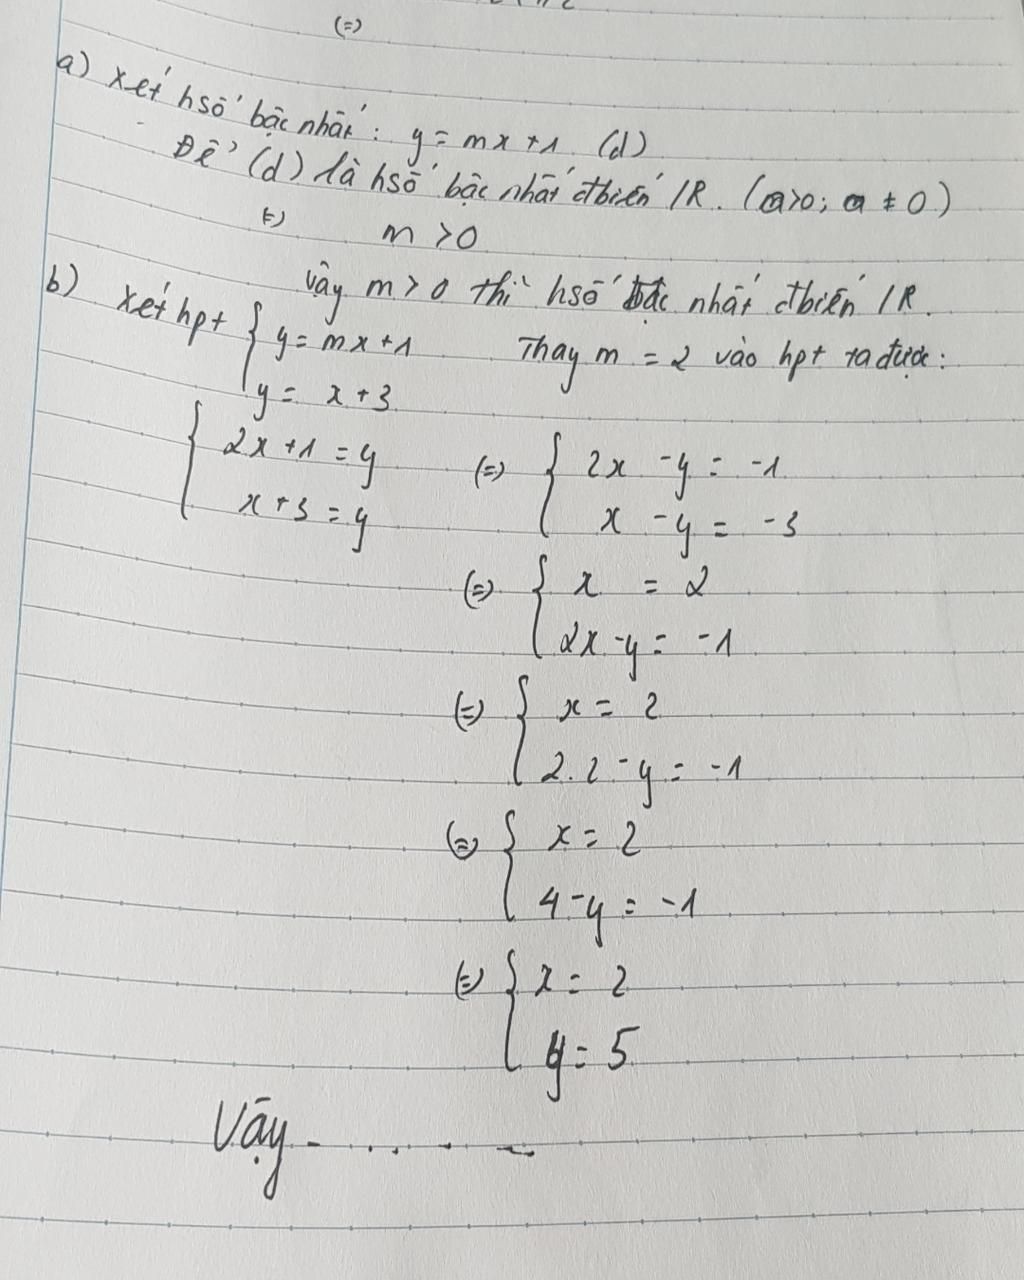 (=)
a) xét hsố bậc nhất : y = mx + 1 (d)
Để (d) là hsố bậc nhất đbiến /R. (a>0; a ≠ 0)
(=) m > 0
Vậy m > 0 thì hsố bậc nhất đbiến /R.
b) xét hpt { y = mx + 1 Thay m = 2 vào hpt ta được:
y = x + 3
{ 2x + 1 = y (=) { 2x - y = -1
x + 3 = y x - y = -3
(=) { x = 2
2x - y = -1
(=) { x = 2
2.2 - y = -1
(=) { x = 2
4 - y = -1
(=) { x = 2
y = 5
Vậy - . . . - -